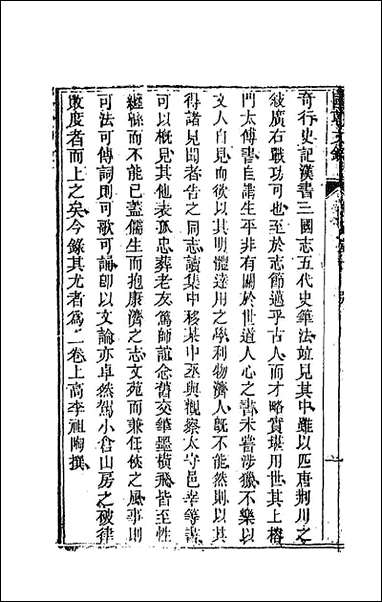 國朝文錄
奇行史記漢書三國志五代史筆法竝見其中雖以匹唐荆川之
敍廣右戰功可也至於志節邁乎古人而才略實堪用世其上椿
門太傅書自謂生平非有關於世道人心之書未嘗涉獵不樂以
文人自見而欲以其明體達用之學利物濟人旣不能然則以其
得諸見聞者告之同志讀集中移某中丞與觀察太守邑宰等書
可以槪見其他表孤忠葬老友篤師誼念舊交筆墨橫飛皆至性
纏緜而不能已蓋儒生而抱康濟之志文苑而兼任俠之風事則
可法可傳詞則可歌可誦卽以文論亦卓然駕小倉山房之破律
敗度者而上之矣今錄其尤者爲二卷上高李祖陶撰